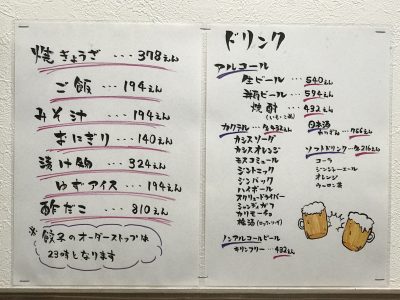 焼ぎょうざ ･･･ 378えん
ご飯 ･･･ 194えん
みそ汁 ･･･ 194えん
おにぎり ･･･ 140えん
漬け物 ･･･ 324えん
ゆずアイス ･･･ 194えん
酢だこ ･･･ 810えん
※ 餃子のオーダーストップは
23時となります
ドリンク
アルコール
生ビール ･･･ 540えん
瓶ビール ･･･ 594えん
焼酎 ･･･ 432えん
(いも・こめ)
カクテル ･･･各432えん
カシスソーダ
カシスオレンジ
モスコミュール
ジントニック
ジンバック
ハイボール
スクリュードライバー
シャンディガフ
カリモーチョ
梅酒 (ロック・ソーダ)
ノンアルコールビール
キリンフリー ･･･ 432えん
日本酒
･･･756えん
ソフトドリンク ･･･各216えん
コーラ
ジンジャーエール
オレンジ
ウーロン茶